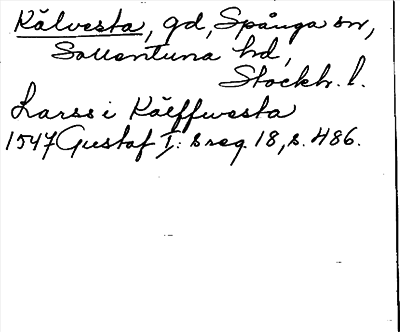 Kälvesta, gd, Spånga sn,
Sollentuna hd,
Stockh. l.
Larss i Kälffwesta
1547 Gustaf I: s reg. 18, s. 486.